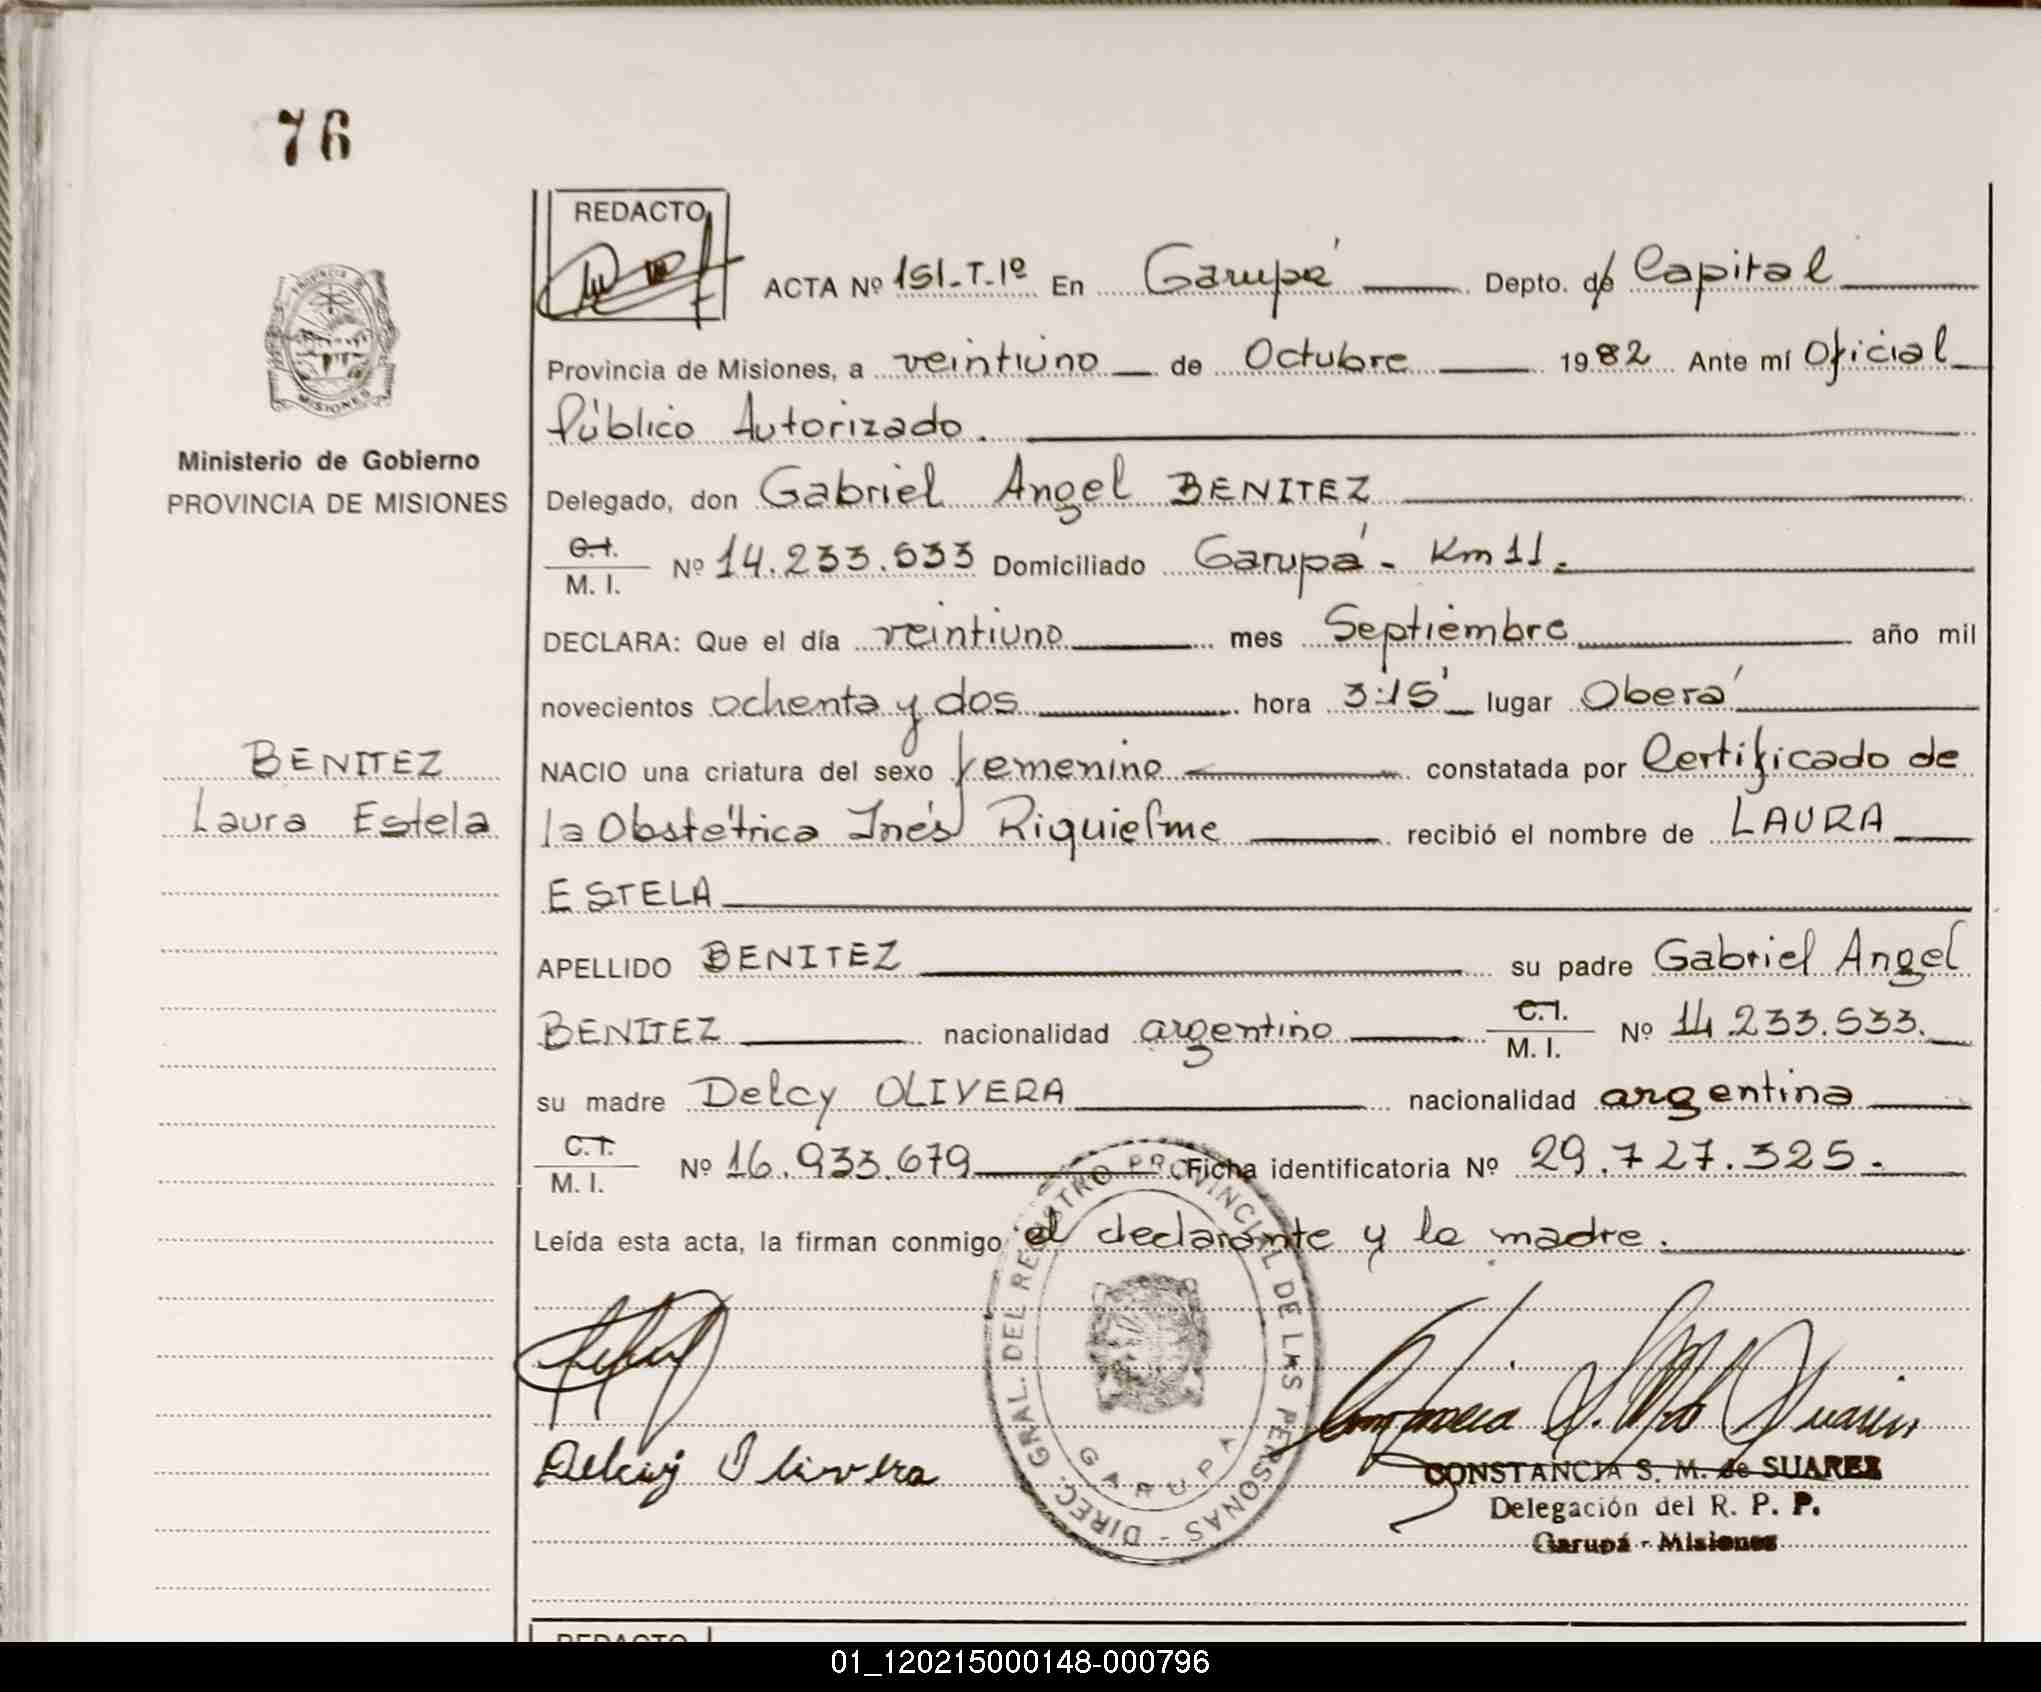 76
REDACTO
ACTA Nº 151-T-1º En Garupá Depto. de Capital
Provincia de Misiones, a veintiuno de Octubre 1982 Ante mí Oficial
Público Autorizado.
Ministerio de Gobierno
PROVINCIA DE MISIONES
Delegado, don Gabriel Angel BENITEZ
C.I.
M. I. Nº 14.233.533 Domiciliado Garupá - Km 11.
DECLARA: Que el día veintiuno mes Septiembre año mil
novecientos ochenta y dos hora 3:15' lugar Oberá
BENITEZ
Laura Estela
NACIO una criatura del sexo femenino constatada por Certificado de
la Obstétrica Inés Riquielme recibió el nombre de LAURA
ESTELA
APELLIDO BENITEZ su padre Gabriel Angel
BENITEZ nacionalidad argentino C.I.
M. I. Nº 14.233.533.
su madre Delcy OLIVERA nacionalidad argentina
C.I.
M. I. Nº 16.933.679 Ficha identificatoria Nº 29.727.325.
Leída esta acta, la firman conmigo el declarante y la madre.
DIREC. GRAL. DEL REGISTRO PROVINCIAL DE LAS PERSONAS -
GARUPA
Delcy Olivera
CONSTANCIA S. M. de SUAREZ
Delegación del R. P. P.
Garupá - Misiones
REDACTO
01_120215000148-000796